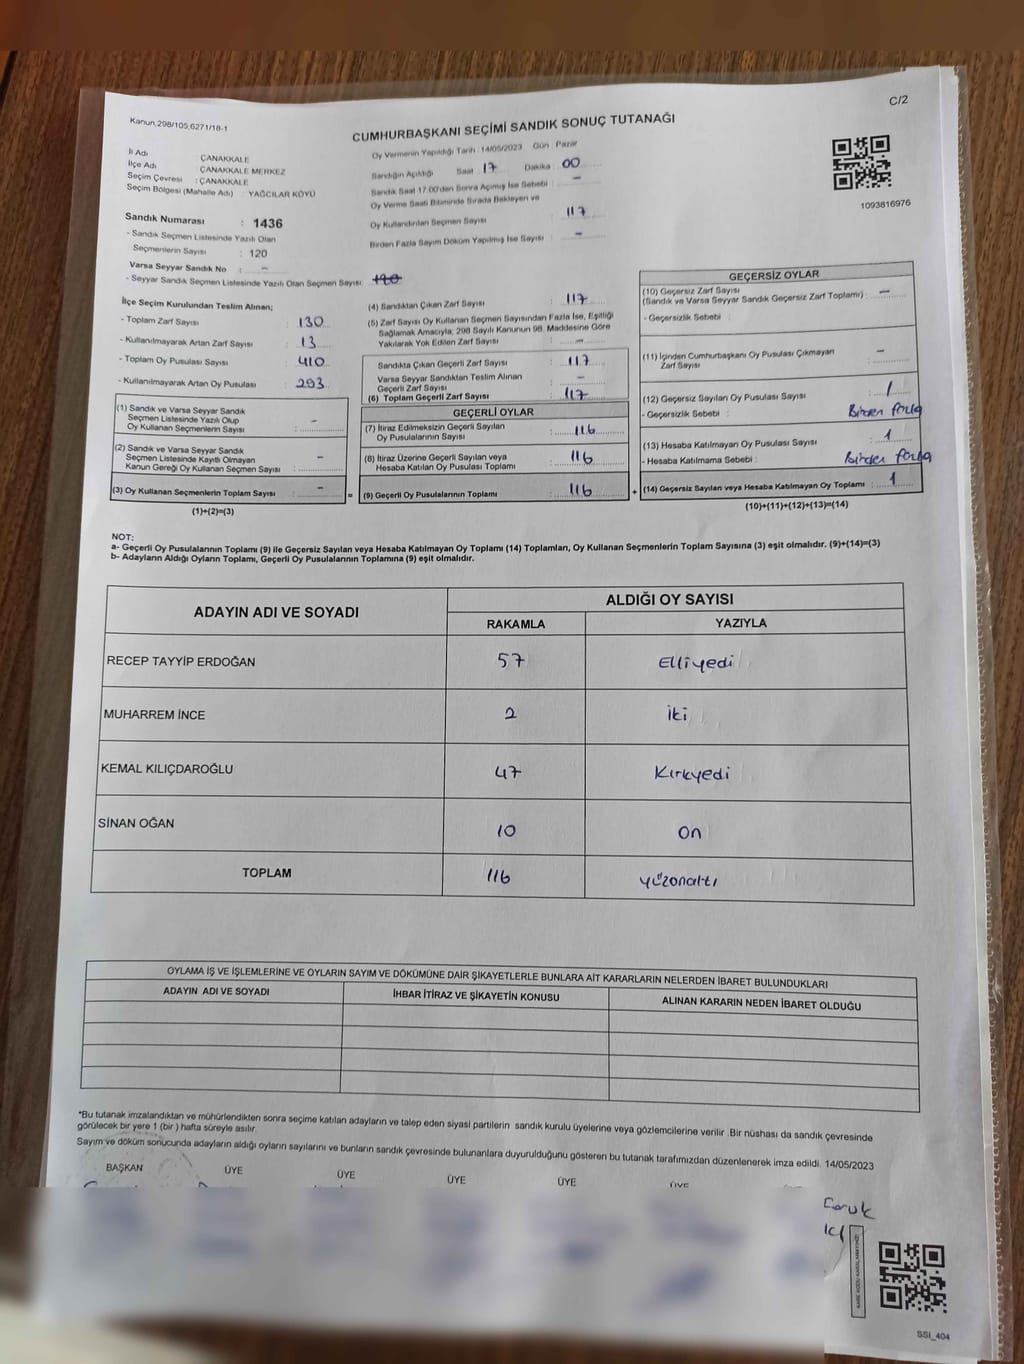 C/2
Kanun,298/105,6271/18-1
CUMHURBAŞKANI SEÇİMİ SANDIK SONUÇ TUTANAĞI
İl Adı : ÇANAKKALE
İlçe Adı : ÇANAKKALE MERKEZ
Seçim Çevresi : ÇANAKKALE
Seçim Bölgesi (Mahalle Adı) : YAĞCILAR KÖYÜ
Oy Vermenin Yapıldığı Tarih : 14/05/2023 Gün : Pazar
Sandığın Açıldığı Saat : 17 Dakika : 00
Sandık Saat 17:00'den Sonra Açılmış İse Sebebi : -
Oy Verme Saati Bitiminde Sırada Bekleyen ve
Oy Kullandırılan Seçmen Sayısı : 117
Birden Fazla Sayım Döküm Yapılmış İse Sayısı : -
1093816976
Sandık Numarası : 1436
- Sandık Seçmen Listesinde Yazılı Olan
Seçmenlerin Sayısı : 120
Varsa Seyyar Sandık No : -
- Seyyar Sandık Seçmen Listesinde Yazılı Olan Seçmen Sayısı: 120
İlçe Seçim Kurulundan Teslim Alınan;
- Toplam Zarf Sayısı : 130
- Kullanılmayarak Artan Zarf Sayısı : 13
- Toplam Oy Pusulası Sayısı : 410
- Kullanılmayarak Artan Oy Pusulası : 293
(1) Sandık ve Varsa Seyyar Sandık
Seçmen Listesinde Yazılı Olup
Oy Kullanan Seçmenlerin Sayısı : -
(2) Sandık ve Varsa Seyyar Sandık
Seçmen Listesinde Kayıtlı Olmayan
Kanun Gereği Oy Kullanan Seçmen Sayısı : -
(3) Oy Kullanan Seçmenlerin Toplam Sayısı : -
(1)+(2)=(3)
(4) Sandıktan Çıkan Zarf Sayısı : 117
(5) Zarf Sayısı Oy Kullanan Seçmen Sayısından Fazla İse, Eşitliği
Sağlamak Amacıyla; 298 Sayılı Kanunun 98. Maddesine Göre
Yakılarak Yok Edilen Zarf Sayısı : -
Sandıkta Çıkan Geçerli Zarf Sayısı : 117
Varsa Seyyar Sandıktan Teslim Alınan
Geçerli Zarf Sayısı : -
(6) Toplam Geçerli Zarf Sayısı : 117
GEÇERLİ OYLAR
(7) İtiraz Edilmeksizin Geçerli Sayılan
Oy Pusulalarının Sayısı : 116
(8) İtiraz Üzerine Geçerli Sayılan veya
Hesaba Katılan Oy Pusulası Toplamı : 116
= (9) Geçerli Oy Pusulalarının Toplamı : 116 +
GEÇERSİZ OYLAR
(10) Geçersiz Zarf Sayısı : -
(Sandık ve Varsa Seyyar Sandık Geçersiz Zarf Toplamı)
- Geçersizlik Sebebi :
(11) İçinden Cumhurbaşkanı Oy Pusulası Çıkmayan
Zarf Sayısı : -
(12) Geçersiz Sayılan Oy Pusulası Sayısı : 1
- Geçersizlik Sebebi : Birden fazla
(13) Hesaba Katılmayan Oy Pusulası Sayısı : 1
- Hesaba Katılmama Sebebi : Birden fazla
(14) Geçersiz Sayılan veya Hesaba Katılmayan Oy Toplamı : 1
(10)+(11)+(12)+(13)=(14)
NOT:
a- Geçerli Oy Pusulalarının Toplamı (9) ile Geçersiz Sayılan veya Hesaba Katılmayan Oy Toplamı (14) Toplamları, Oy Kullanan Seçmenlerin Toplam Sayısına (3) eşit olmalıdır. (9)+(14)=(3)
b- Adayların Aldığı Oyların Toplamı, Geçerli Oy Pusulalarının Toplamına (9) eşit olmalıdır.
ADAYIN ADI VE SOYADI
ALDIĞI OY SAYISI
RAKAMLA YAZIYLA
RECEP TAYYİP ERDOĞAN 57 Elliyedi
MUHARREM İNCE 2 İki
KEMAL KILIÇDAROĞLU 47 Kırkyedi
SİNAN OĞAN 10 On
TOPLAM 116 yüzonaltı
OYLAMA İŞ VE İŞLEMLERİNE VE OYLARIN SAYIM VE DÖKÜMÜNE DAİR ŞİKAYETLERLE BUNLARA AİT KARARLARIN NELERDEN İBARET BULUNDUKLARI
ADAYIN ADI VE SOYADI İHBAR İTİRAZ VE ŞİKAYETİN KONUSU ALINAN KARARIN NEDEN İBARET OLDUĞU
*Bu tutanak imzalandıktan ve mühürlendikten sonra seçime katılan adayların ve talep eden siyasi partilerin sandık kurulu üyelerine veya gözlemcilerine verilir .Bir nüshası da sandık çevresinde
görülecek bir yere 1 (bir ) hafta süreyle asılır.
Sayım ve döküm sonucunda adayların aldığı oyların sayılarını ve bunların sandık çevresinde bulunanlara duyurulduğunu gösteren bu tutanak tarafımızdan düzenlenerek imza edildi. 14/05/2023
BAŞKAN ÜYE ÜYE ÜYE ÜYE ÜYE
SSI_404